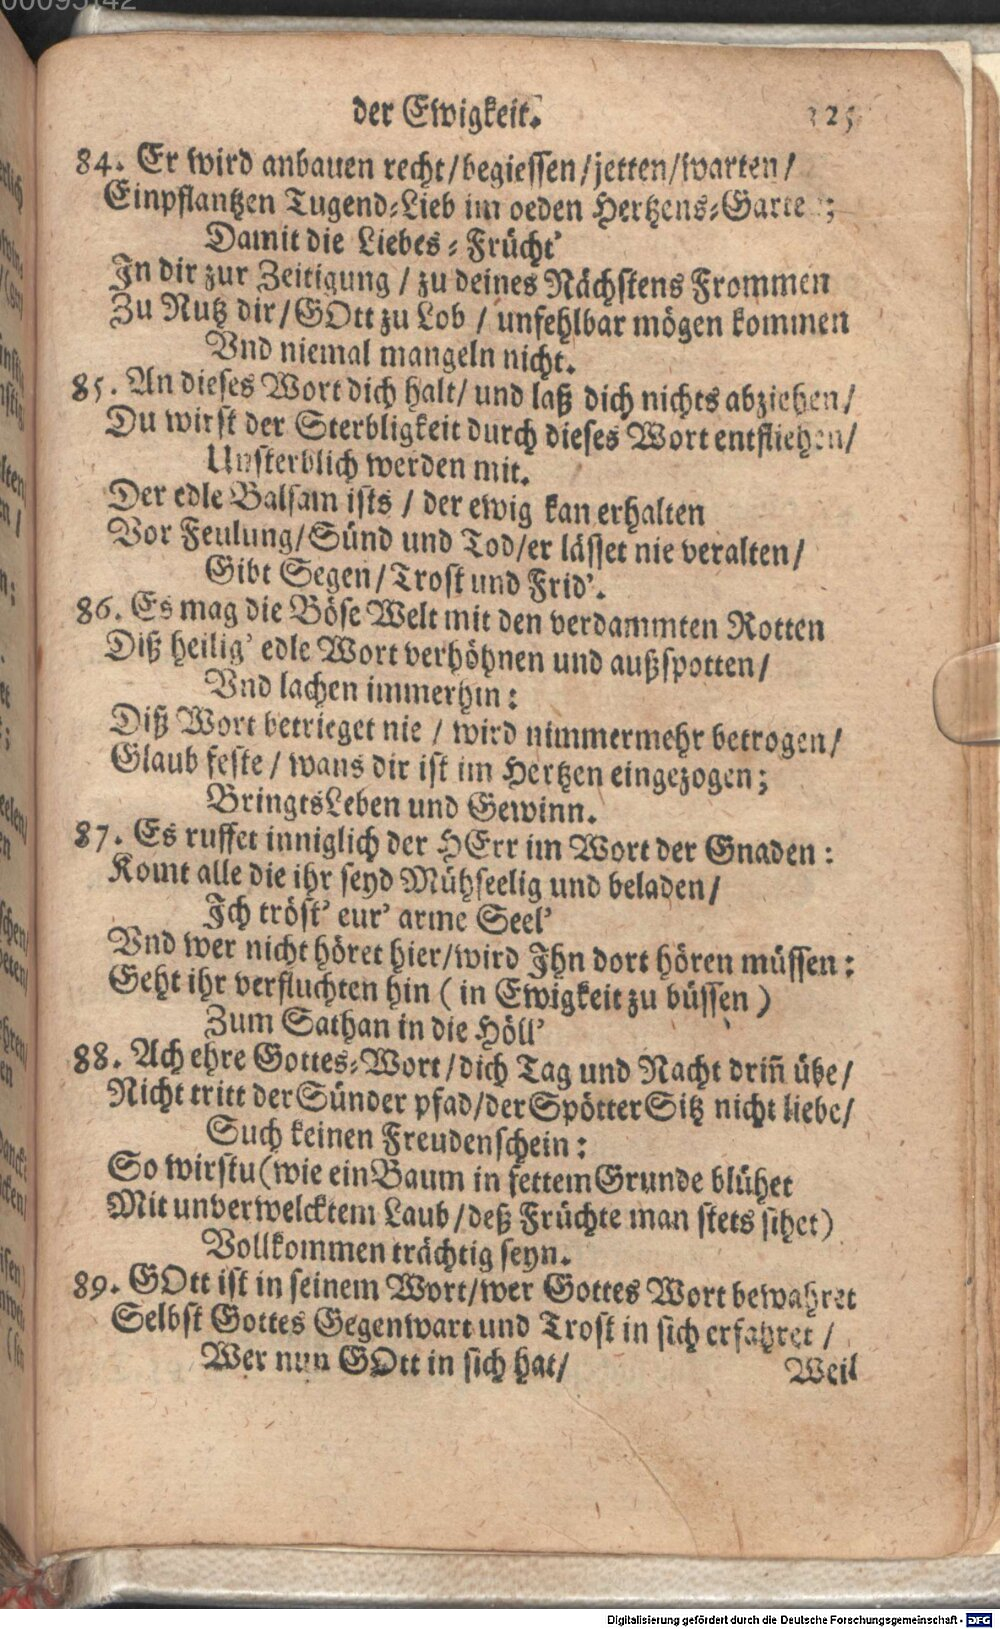 00095142
der Ewigkeit. 325
84. Er wird anbauen recht/begiessen/jetten/warten/
Einpflantzen Tugend-Lieb im oeden Hertzens-Garte ;
Damit die Liebes-Frücht'
In dir zur Zeitigung / zu deines Nächstens Frommen
Zu Nutz dir/GOtt zu Lob / unfehlbar mögen kommen
Vnd niemal mangeln nicht.
85. An dieses Wort dich halt/ und laß dich nichts abziehen/
Du wirst der Sterbligkeit durch dieses Wort entfliehen/
Unsterblich werden mit.
Der edle Balsam ists / der ewig kan erhalten
Vor Feulung/Sünd und Tod/er lässet nie veralten/
Gibt Segen/Trost und Frid'.
86. Es mag die Böse Welt mit den verdammten Rotten
Diß heilig' edle Wort verhöhnen und außspotten/
Vnd lachen immerhin:
Diß Wort betrieget nie / wird nimmermehr betrogen/
Glaub feste / wans dir ist im Hertzen eingezogen;
Bringts Leben und Gewinn.
87. Es ruffet inniglich der HErr im Wort der Gnaden:
Komt alle die ihr seyd Mühseelig und beladen/
Ich tröst' eur' arme Seel'
Vnd wer nicht höret hier/wird Ihn dort hören müssen:
Geht ihr verfluchten hin (in Ewigkeit zu büssen)
Zum Sathan in die Höll'
88. Ach ehre Gottes-Wort/dich Tag und Nacht driñ übe/
Nicht tritt der Sünder pfad/der Spötter Sitz nicht liebe/
Such keinen Freudenschein:
So wirstu (wie ein Baum in fettem Grunde blühet
Mit unverwelcktem Laub/deß Früchte man stets sihet)
Vollkommen trächtig seyn.
89. GOtt ist in seinem Wort/wer Gottes Wort bewahret
Selbst Gottes Gegenwart und Trost in sich erfahret /
Wer nun GOtt in sich hat/
Weil
Digitalisierung gefördert durch die Deutsche Forschungsgemeinschaft - DFG